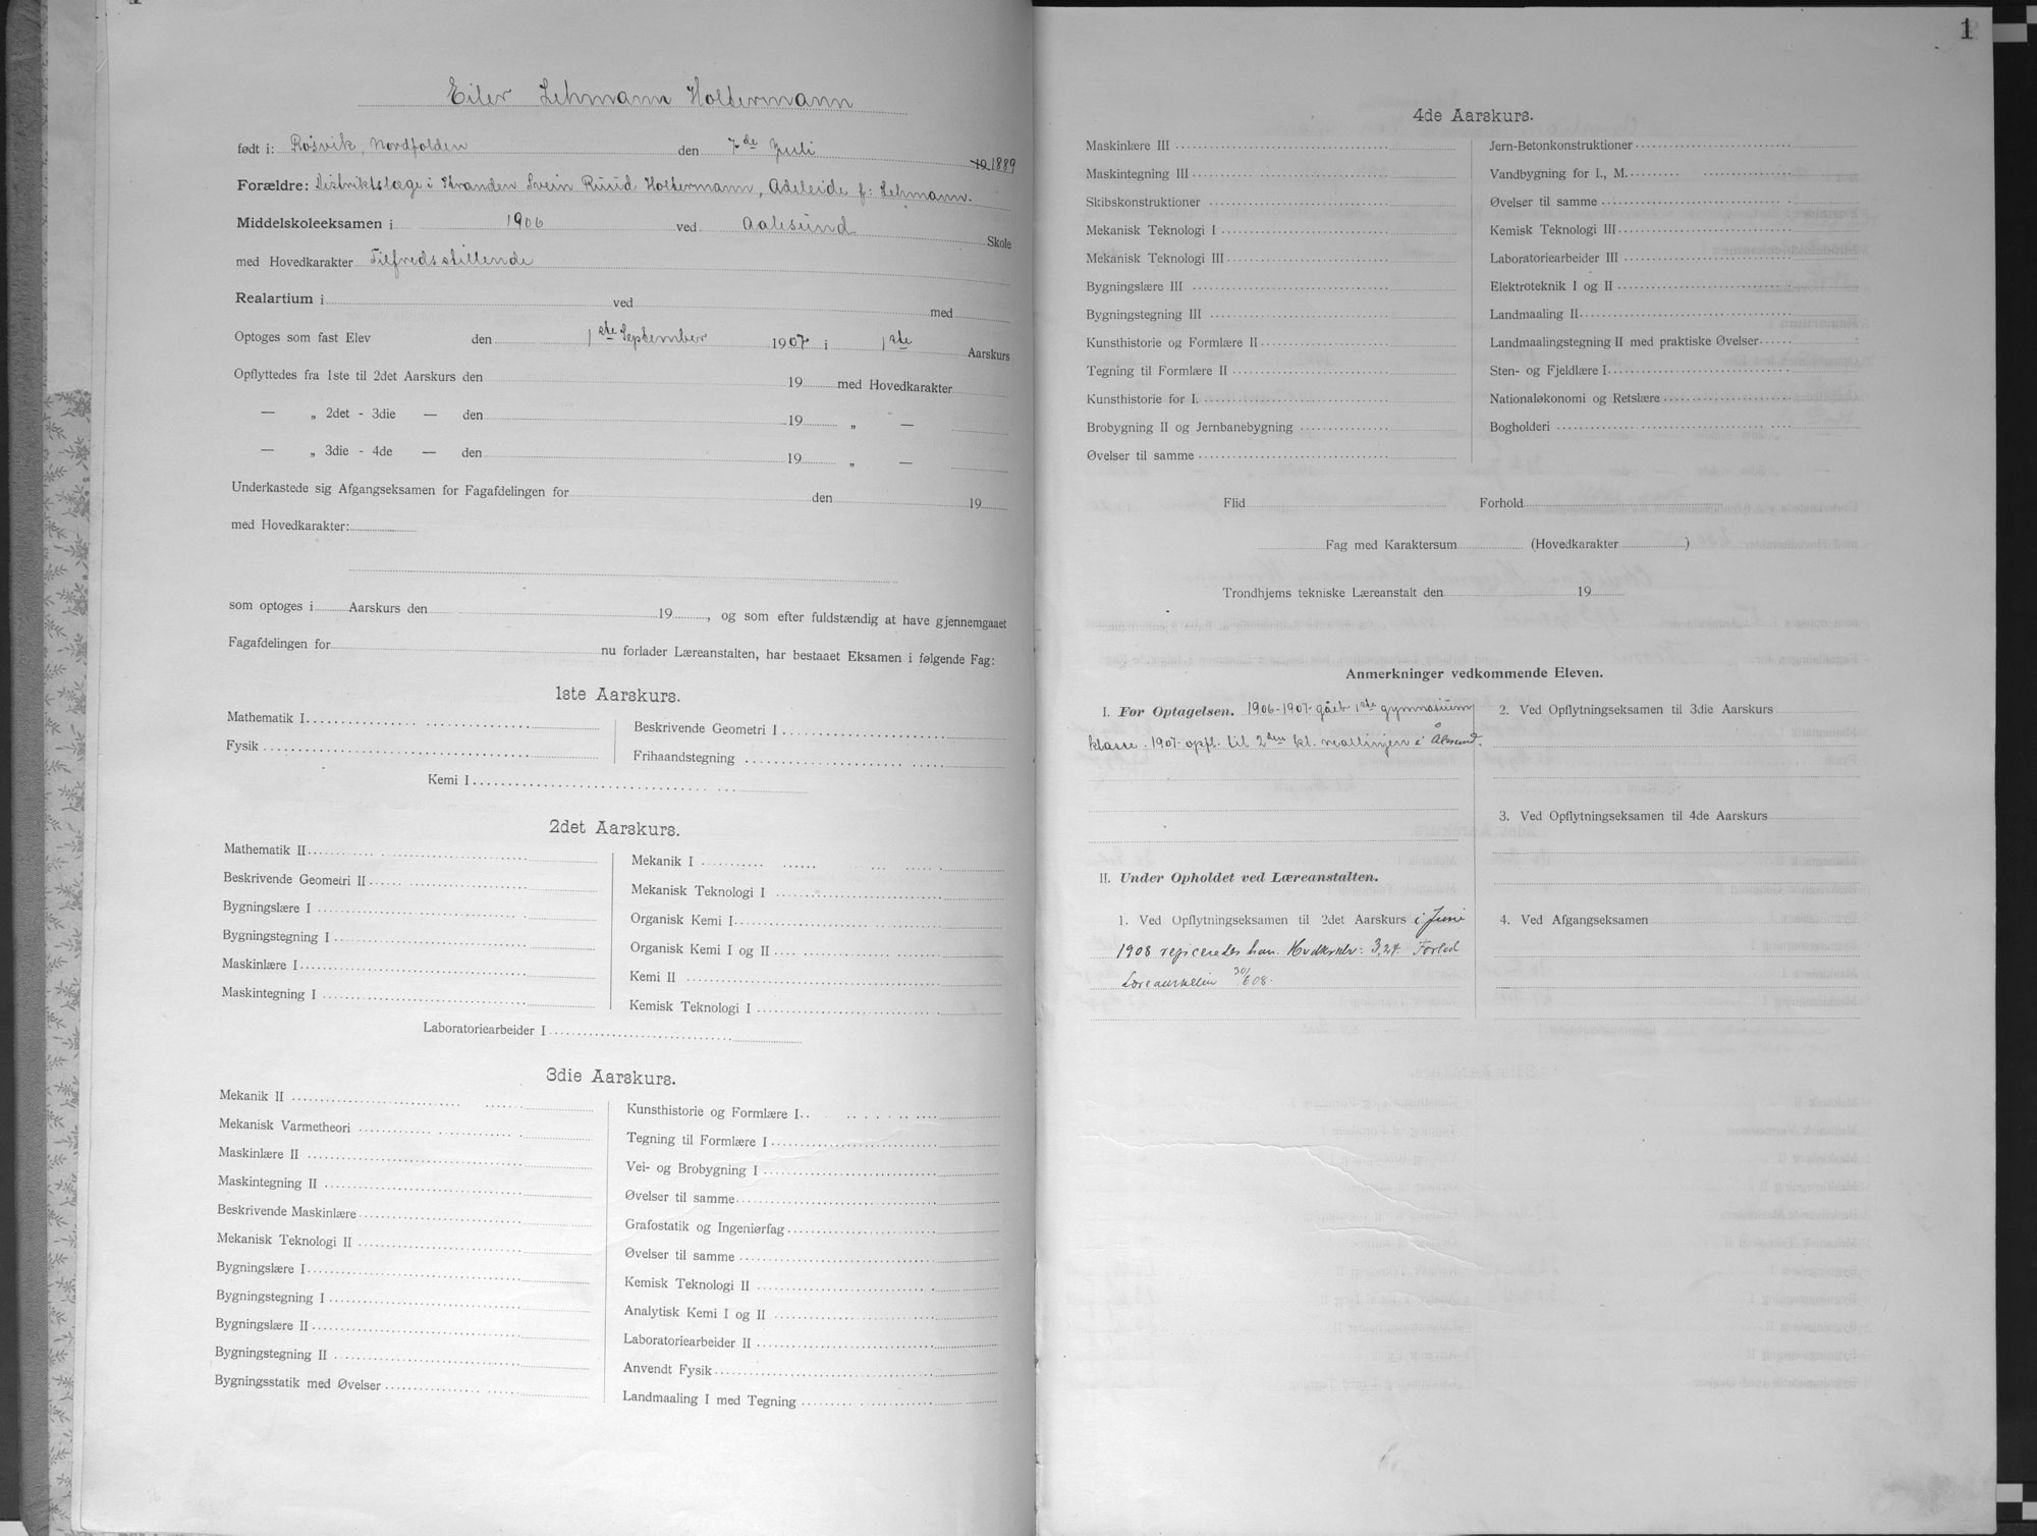 Eiler Lehmann Holtermann
født i: Røsvik, Nordfolden den 7de Juli 19 1889
Forældre: Distriktslæge i Stranden Svein Ruud Holtermann, Adeleide f: Lehmann.
Middelskoleeksamen i 1906 ved Aalesund Skole
med Hovedkarakter Tilfredsstillende
Realartium i ved med
Optoges som fast Elev den 1ste September 1907 i 1ste Aarskurs
Opflyttedes fra 1ste til 2det Aarskurs den 19 med Hovedkarakter
— „ 2det - 3die — den 19 „ —
— „ 3die - 4de — den 19 „ —
Underkastede sig Afgangseksamen for Fagafdelingen for den 19
med Hovedkarakter:
som optoges i Aarskurs den 19 , og som efter fuldstændig at have gjennemgaaet
Fagafdelingen for nu forlader Læreanstalten, har bestaaet Eksamen i følgende Fag:
1ste Aarskurs.
Mathematik I
Fysik
Beskrivende Geometri I
Frihaandstegning
Kemi I
2det Aarskurs.
Mathematik II
Beskrivende Geometri II
Bygningslære I
Bygningstegning I
Maskinlære I
Maskintegning I
Mekanik I
Mekanisk Teknologi I
Organisk Kemi I
Organisk Kemi I og II
Kemi II
Kemisk Teknologi I
Laboratoriearbeider I
3die Aarskurs.
Mekanik II
Mekanisk Varmetheori
Maskinlære II
Maskintegning II
Beskrivende Maskinlære
Mekanisk Teknologi II
Bygningslære I
Bygningstegning I
Bygningslære II
Bygningstegning II
Bygningsstatik med Øvelser
Kunsthistorie og Formlære I
Tegning til Formlære I
Vei- og Brobygning I
Øvelser til samme
Grafostatik og Ingeniørfag
Øvelser til samme
Kemisk Teknologi II
Analytisk Kemi I og II
Laboratoriearbeider II
Anvendt Fysik
Landmaaling I med Tegning
1
4de Aarskurs.
Maskinlære III
Maskintegning III
Skibskonstruktioner
Mekanisk Teknologi I
Mekanisk Teknologi III
Bygningslære III
Bygningstegning III
Kunsthistorie og Formlære II
Tegning til Formlære II
Kunsthistorie for I.
Brobygning II og Jernbanebygning
Øvelser til samme
Jern-Betonkonstruktioner
Vandbygning for I., M.
Øvelser til samme
Kemisk Teknologi III
Laboratoriearbeider III
Elektroteknik I og II
Landmaaling II
Landmaalingstegning II med praktiske Øvelser
Sten- og Fjeldlære I
Nationaløkonomi og Retslære
Bogholderi
Flid Forhold
Fag med Karaktersum (Hovedkarakter )
Trondhjems tekniske Læreanstalt den 19
Anmerkninger vedkommende Eleven.
I. Før Optagelsen. 1906-1907 gået 1ste gymnasium
klasse. 1907 opfl. til 2den kl. reallinjen i Ålesund.
II. Under Opholdet ved Læreanstalten.
1. Ved Opflytningseksamen til 2det Aarskurs i Juni
1908 rejiceredes han. Hvdkrakt: 3,24. Forlod
Læreanstalten 30/6 08.
2. Ved Opflytningseksamen til 3die Aarskurs
3. Ved Opflytningseksamen til 4de Aarskurs
4. Ved Afgangseksamen